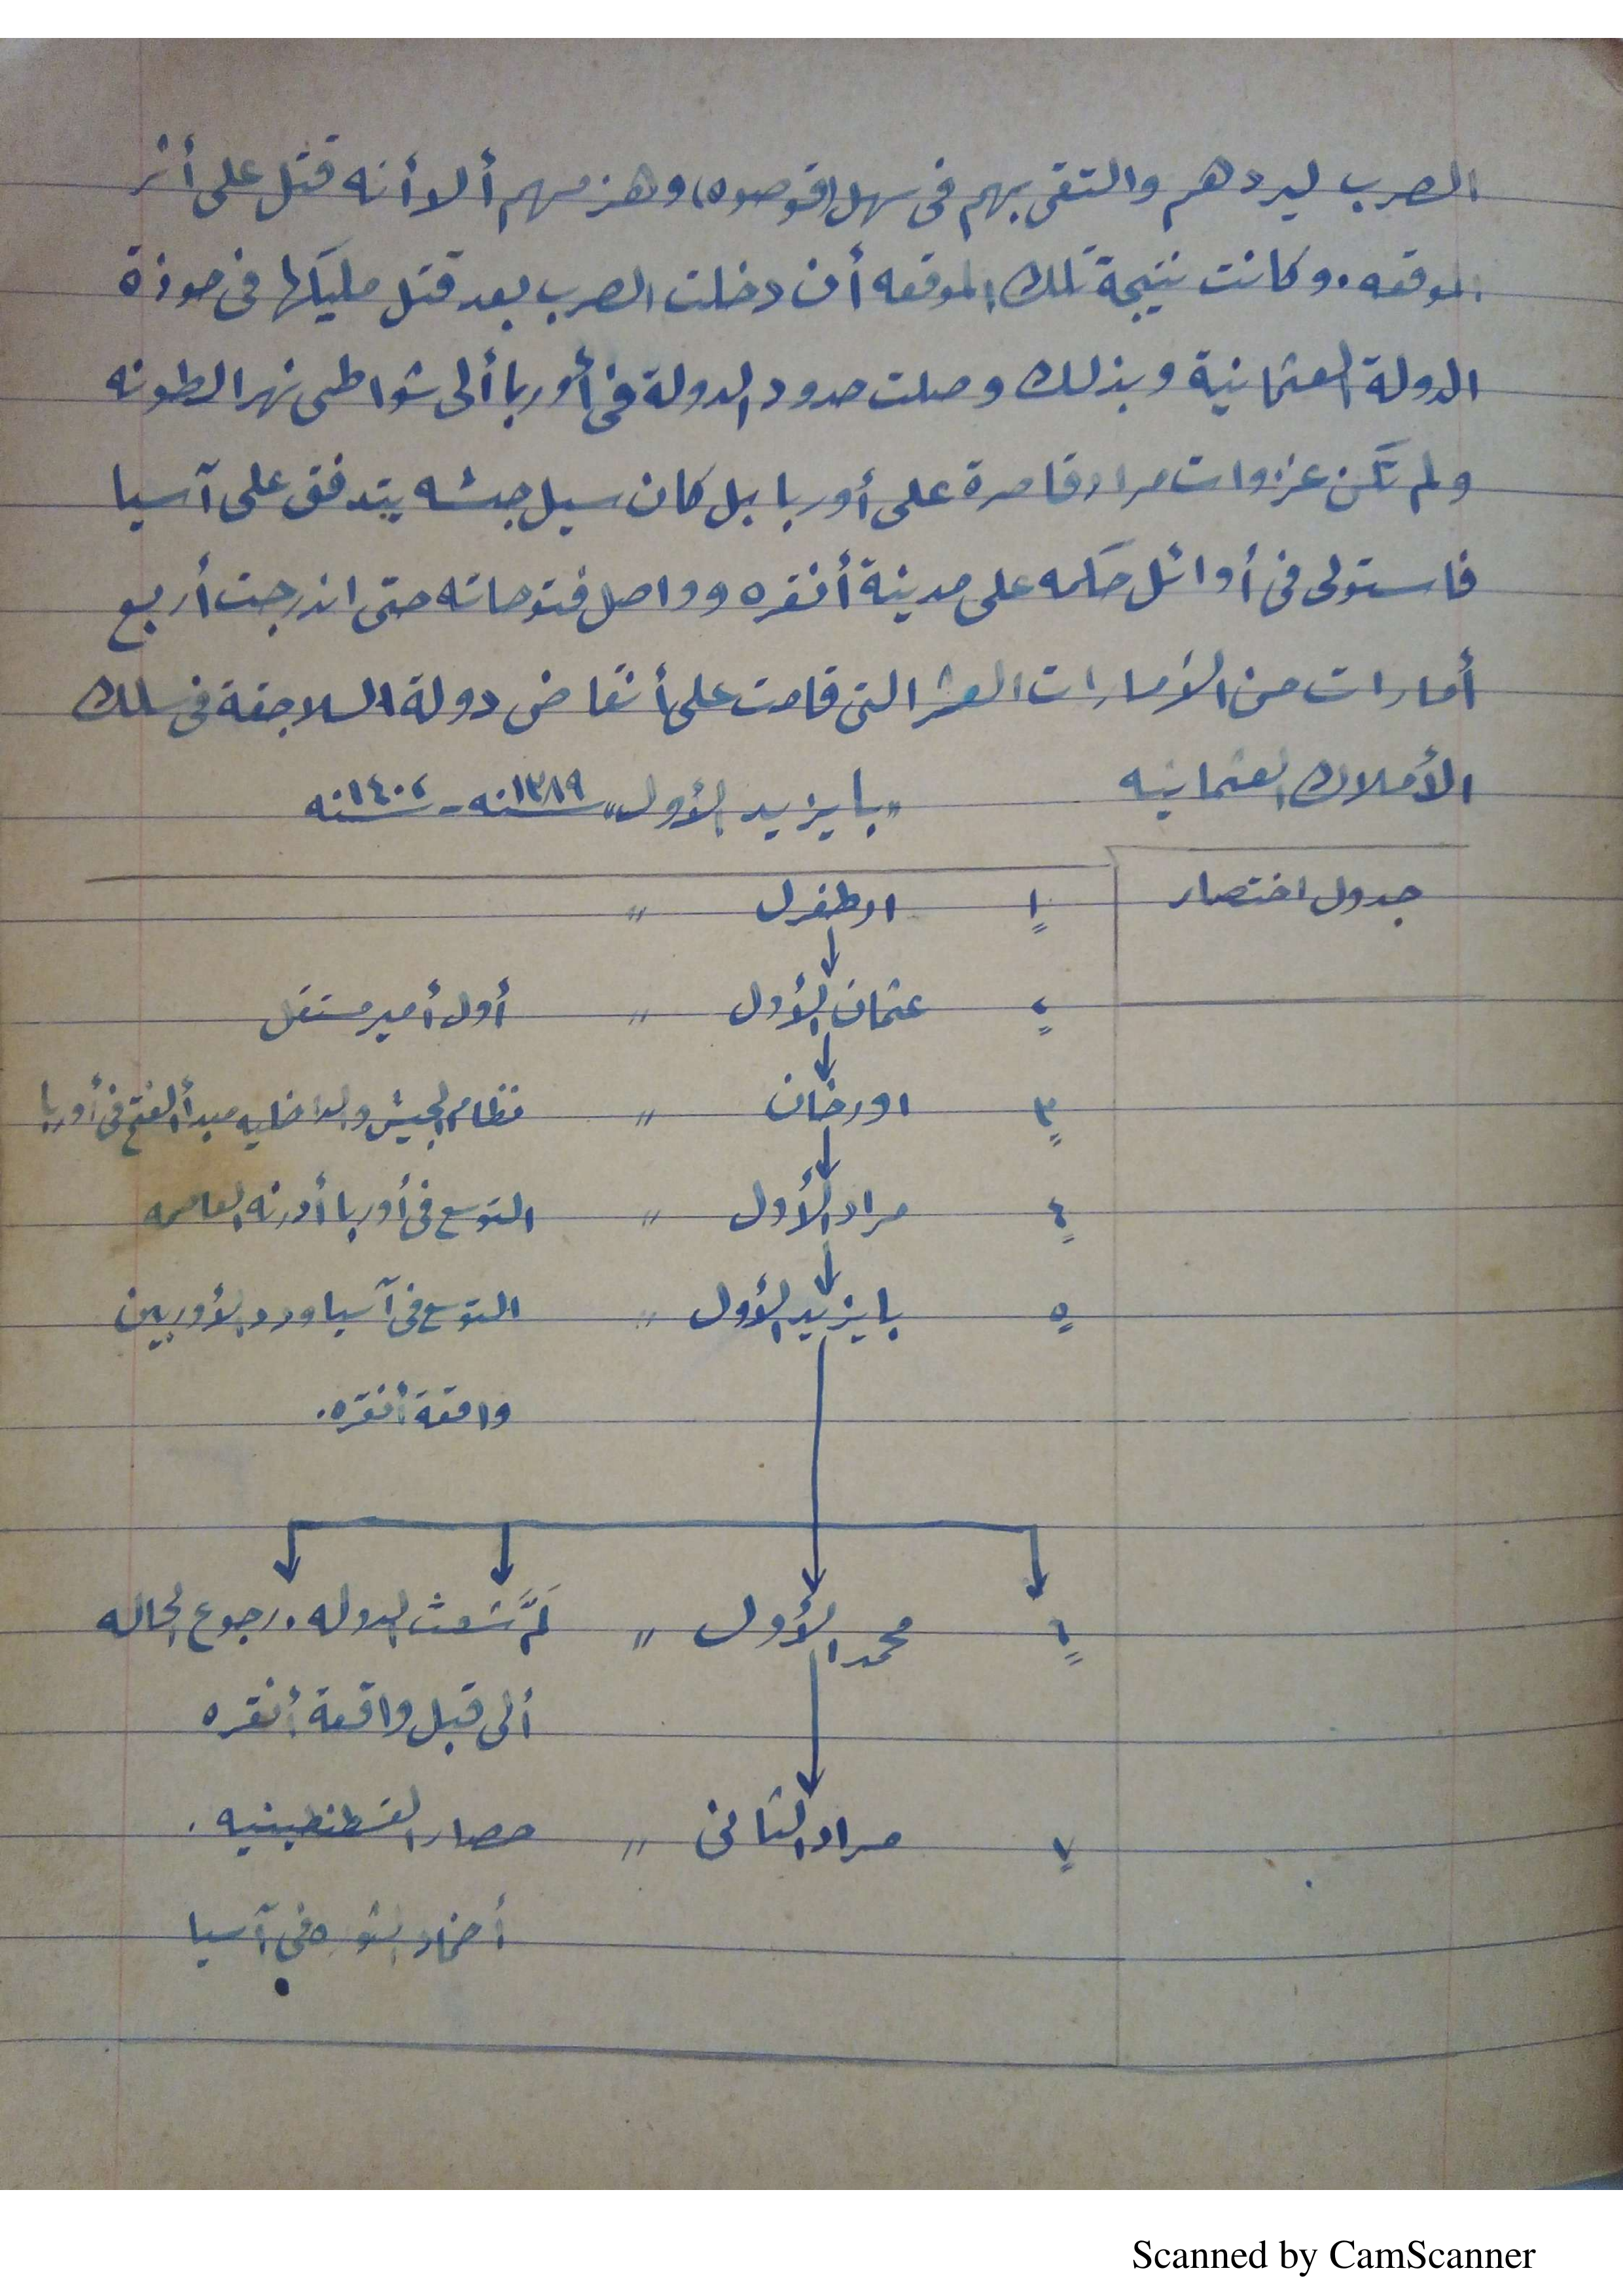 الصرب ليردهم والتقى بهم فى سهل (قوصوه) وهزمهم ألا أنه قتل على أثر
الموقعه . وكانت نتيجة تلك الموقعه أن دخلت الصرب بعد قتل مليكها فى حوزة
الدولة العثمانية وبذلك وصلت حدود الدولة فى أوربا ألى شواطىء نهر الطونه
ولم تكن غزوات مراد قاصرة على أوربا بل كان سيل جيشه يتدفق على آسيا
فاستولى فى أوائل حكمه على مدينة أنقره وواصل فتوحاته حتى اندرجت أربع
أمارات من الأمارات العشر التى قامت على أنقاض دولة السلاجقة فى سلك
الأملاك العثمانيه
"بايزيد الأول" سنة ١٣٨٩ - سنة ١٤٠٢
جدول اختصار
١ ارطغرل "
٢ عثمان الأول " أول أمير مستقل
٣ اورخان " نظام الجيش والداخليه مبدأ الفتح فى أوربا
٤ مراد الأول " التوسع فى أوربا أدرنه العاصمه
٥ بايزيد الأول " التوسع فى آسيا ورد الأوربيين
واقعة أنقره .
٦ محمد الأول " لمَّ شعث الدوله . رجوع الحاله
ألى قبل واقعة أنقره
٧ مراد الثانى " حصار القسطنطينيه .
أخماد الثوره فى آسيا
Scanned by CamScanner